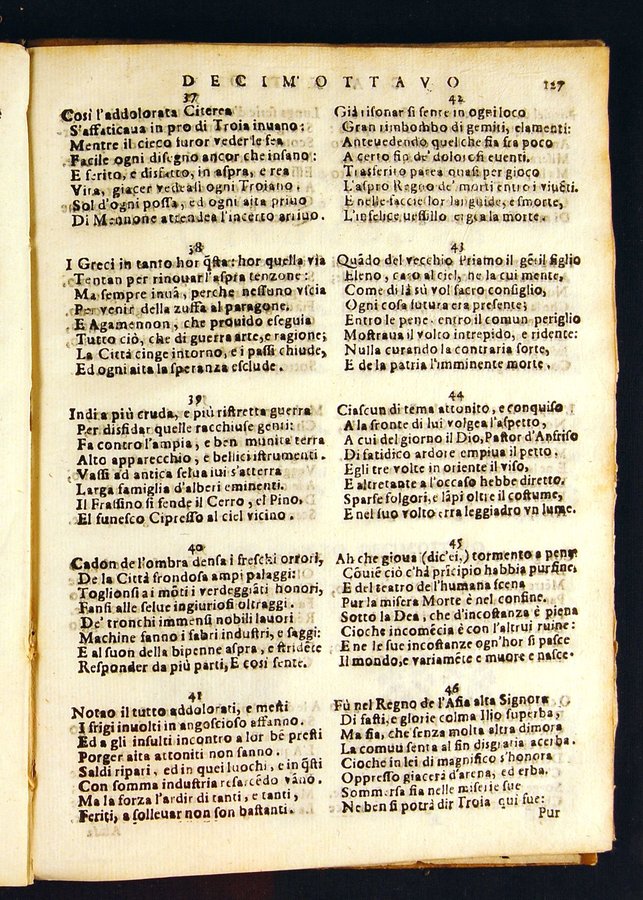 DECIMOTTAVO
127
37
Così l'addolorata Citerea
S'affaticaua in pro di Troia inuano:
Mentre il cieco furor vederle fea
Facile ogni disegno ancor che insano:
E ferito, e disfatto, in aspra, e rea
Vita, giacer vedeasi ogni Troiano.
Sol d'ogni possa, ed ogni aita priuo
Di Mennone attendea l'incerto arriuo.
38
I Greci in tanto hor q̃sta: hor quella via
Tentan per rinouar l'aspra tenzone:
Ma sempre inuã, perche nessuno vscia
Per venir della zuffa al paragone.
E Agamennon, che prouido eseguia
Tutto ciò, che di guerra arte, e ragione;
La Città cinge intorno, e i passi chiude,
Ed ogni aita la speranza esclude.
39
Indi a più cruda, e più ristretta guerra
Per disfidar quelle racchiuse genti:
Fa contro l'ampia, e ben munita terra
Alto apparecchio, e bellici istrumenti.
Vassi ad antica selua iui s'atterra
Larga famiglia d'alberi eminenti.
Il Frassino si fende il Cerro, el Pino,
El funesto Cipresso al ciel vicino.
40
Cadon de l'ombra densa i freschi orrori,
De la Città frondosa ampi palaggi:
Toglionsi a i mõti i verdeggiãti honori,
Fansi alle selue ingiuriosi oltraggi.
De' tronchi immensi nobili lauori
Machine fanno i fabri industri, e saggi:
E al suon della bipenne aspra, e stridẽte
Responder da più parti, E cosi sente.
41
Notao il tutto addolorati, e mesti
I frigi inuolti in angoscioso affanno.
Ed a gli insulti incontro a lor bẽ presti
Porger aita attoniti non sanno.
Saldi ripari, ed in quei luochi, e in q̃sti
Con somma industria resarcẽdo vãno.
Ma la forza l'ardir di tanti, e tanti,
Feriti, a solleuar non son bastanti.
42
Già risonar si sente in ogni loco
Gran rimbombo di gemiti, e lamenti:
Anteuedendo quel che fia fra poco
A certo fin de' dolorosi euenti.
Trasferito parea quasi per gioco
L'aspro Regno de' morti entro i viuẽti.
E nelle faccie lor languide, e smorte,
L'infelice uessillo ergea la morte.
43
Quãdo del vecchio Priamo il gẽtil figlio
Eleno, caro al ciel, ne la cui mente,
Come di là sù vol sacro consiglio,
Ogni cosa futura era presente;
Entro le pene entro il comun periglio
Mostraua il volto intrepido, e ridente:
Nulla curando la contraria sorte,
E de la patria l'imminente morte.
44
Ciascun di tema attonito, e conquiso
A la fronte di lui volgea l'aspetto,
A cui del giorno il Dio, Pastor d'Anfriso
Di fatidico ardore empiua il petto.
Egli tre volte in oriente il viso,
E altretante a l'occaso hebbe diretto.
Sparse folgori, e lãpi oltre il costume,
E nel suo volto erra leggiadro vn lume.
45
Ah che gioua (dic'ei,) tormento a pene
Cõuiẽ ciò c'hà prĩcipio habbia pur fine,
E del teatro de l'humana scena
Pur la misera Morte è nel confine.
Sotto la Dea, che d'incostanza è piena
Cioche incomẽcia è con l'altrui ruine:
E ne le sue incostanze ogn'hor si pasce
Il mondo, e variamẽte e muore e nasce.
46
Fù nel Regno de l'Asia alta Signora
Di fasti, e glorie colma Ilio superba,
Ma fia, che senza molta altra dimora
La comun senta al fin disgratia acerba.
Cioche in lei di magnifico s'honora
Oppresso giacerà d'arena, ed erba.
Sommersa fia nelle miserie sue
Ne ben si potrà dir Troia qui fue:
Pur